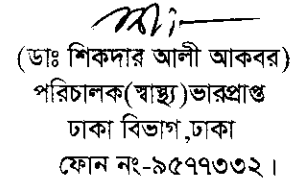 (ডাঃ শিকদার আলী আকবর)
পরিচালক(স্বাস্থ্য)ভারপ্রাপ্ত
ঢাকা বিভাগ,ঢাকা
ফোন নং-৯৫৭৭৩৩২।